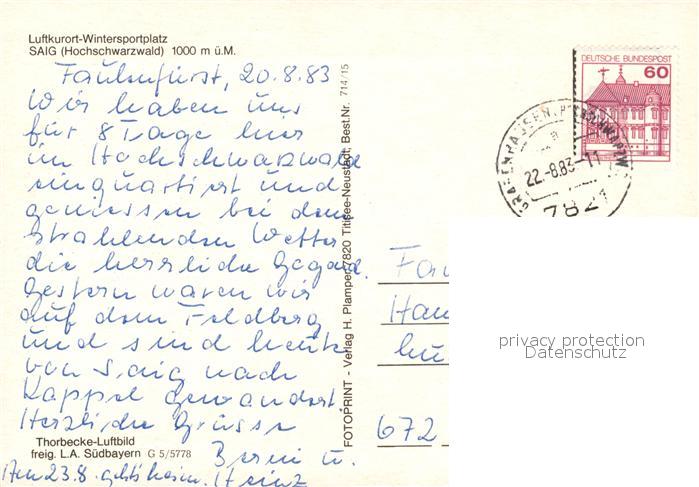 Luftkurort-Wintersportplatz
SAIG (Hochschwarzwald) 1000 m ü.M.
Faulenfürst, 20.8.83
Wir haben uns
für 8 Tage hier
im Hochschwarzwald
einquartiert und
geniessen bei dem
strahlenden Wetter
die herrliche Gegend.
Gestern waren wir
auf dem Feldberg
und sind heute
von Saig nach
Kappel gewandert.
Herzliche Grüsse
Thorbecke-Luftbild
freig. L.A. Südbayern G 5/5778
u.
Am 23.8. geht's heim. Heinz
FOTOPRINT - Verlag H. Plamper 7820 Titisee-Neustadt, Best.Nr. 714/15
DEUTSCHE BUNDESPOST
60
22.-8.83-11
7821
Fa
Han
672
privacy protection
Datenschutz